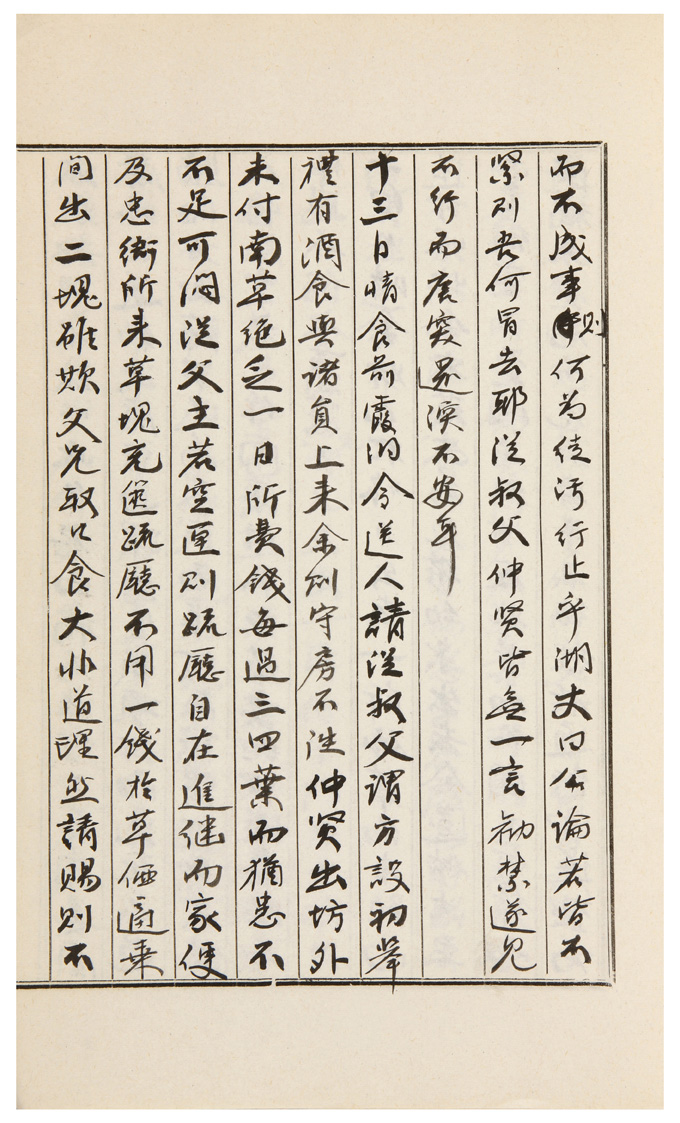 而不成事則何為徒污行止乎湖丈曰公論若皆不
緊則吾何冒去耶從叔父仲賢皆無一言勸禁遂見
不行而唐突還淚不安耳
十三日晴食前霞洞令送人請從叔父謂方設初舉
禮有酒食與諸員上来余則守房不往仲賢出坊外
未付南草絶乏一日所費錢每過三四葉而猶患不
不足可悶從父主若空匣則踈廳自在進継而家便
及忠衛所来草塊充篋踈廳不用一錢於草価適乗
間出二塊雖欺父兄取以食大非道理然請賜則不